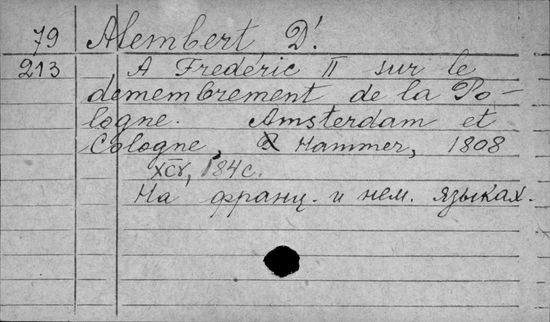 79 Alembert D'.
213 A Frédéric II sur le
demembrement de la Po-
logne. Amsterdam et
Cologne, Hammer, 1808
XCV, 184 с.
На франц. и нем. языках.